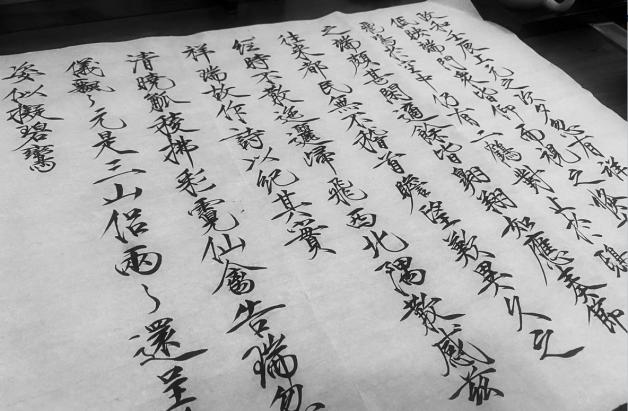 政和壬辰上元之次夕忽有祥
低映端門眾皆仰而視之倏
飛鳴於空中仍有二鶴對止於鴟
之端頗甚閑適餘皆翱翔如應奏節
往來都民無不稽首瞻望歎異久之
經時不散迤邐歸飛西北隅散感茲
祥瑞故作詩以紀其實
清曉觚稜拂彩霓仙禽告瑞忽
儀飄〻元是三山侶兩〻還呈
姿似擬碧鸞